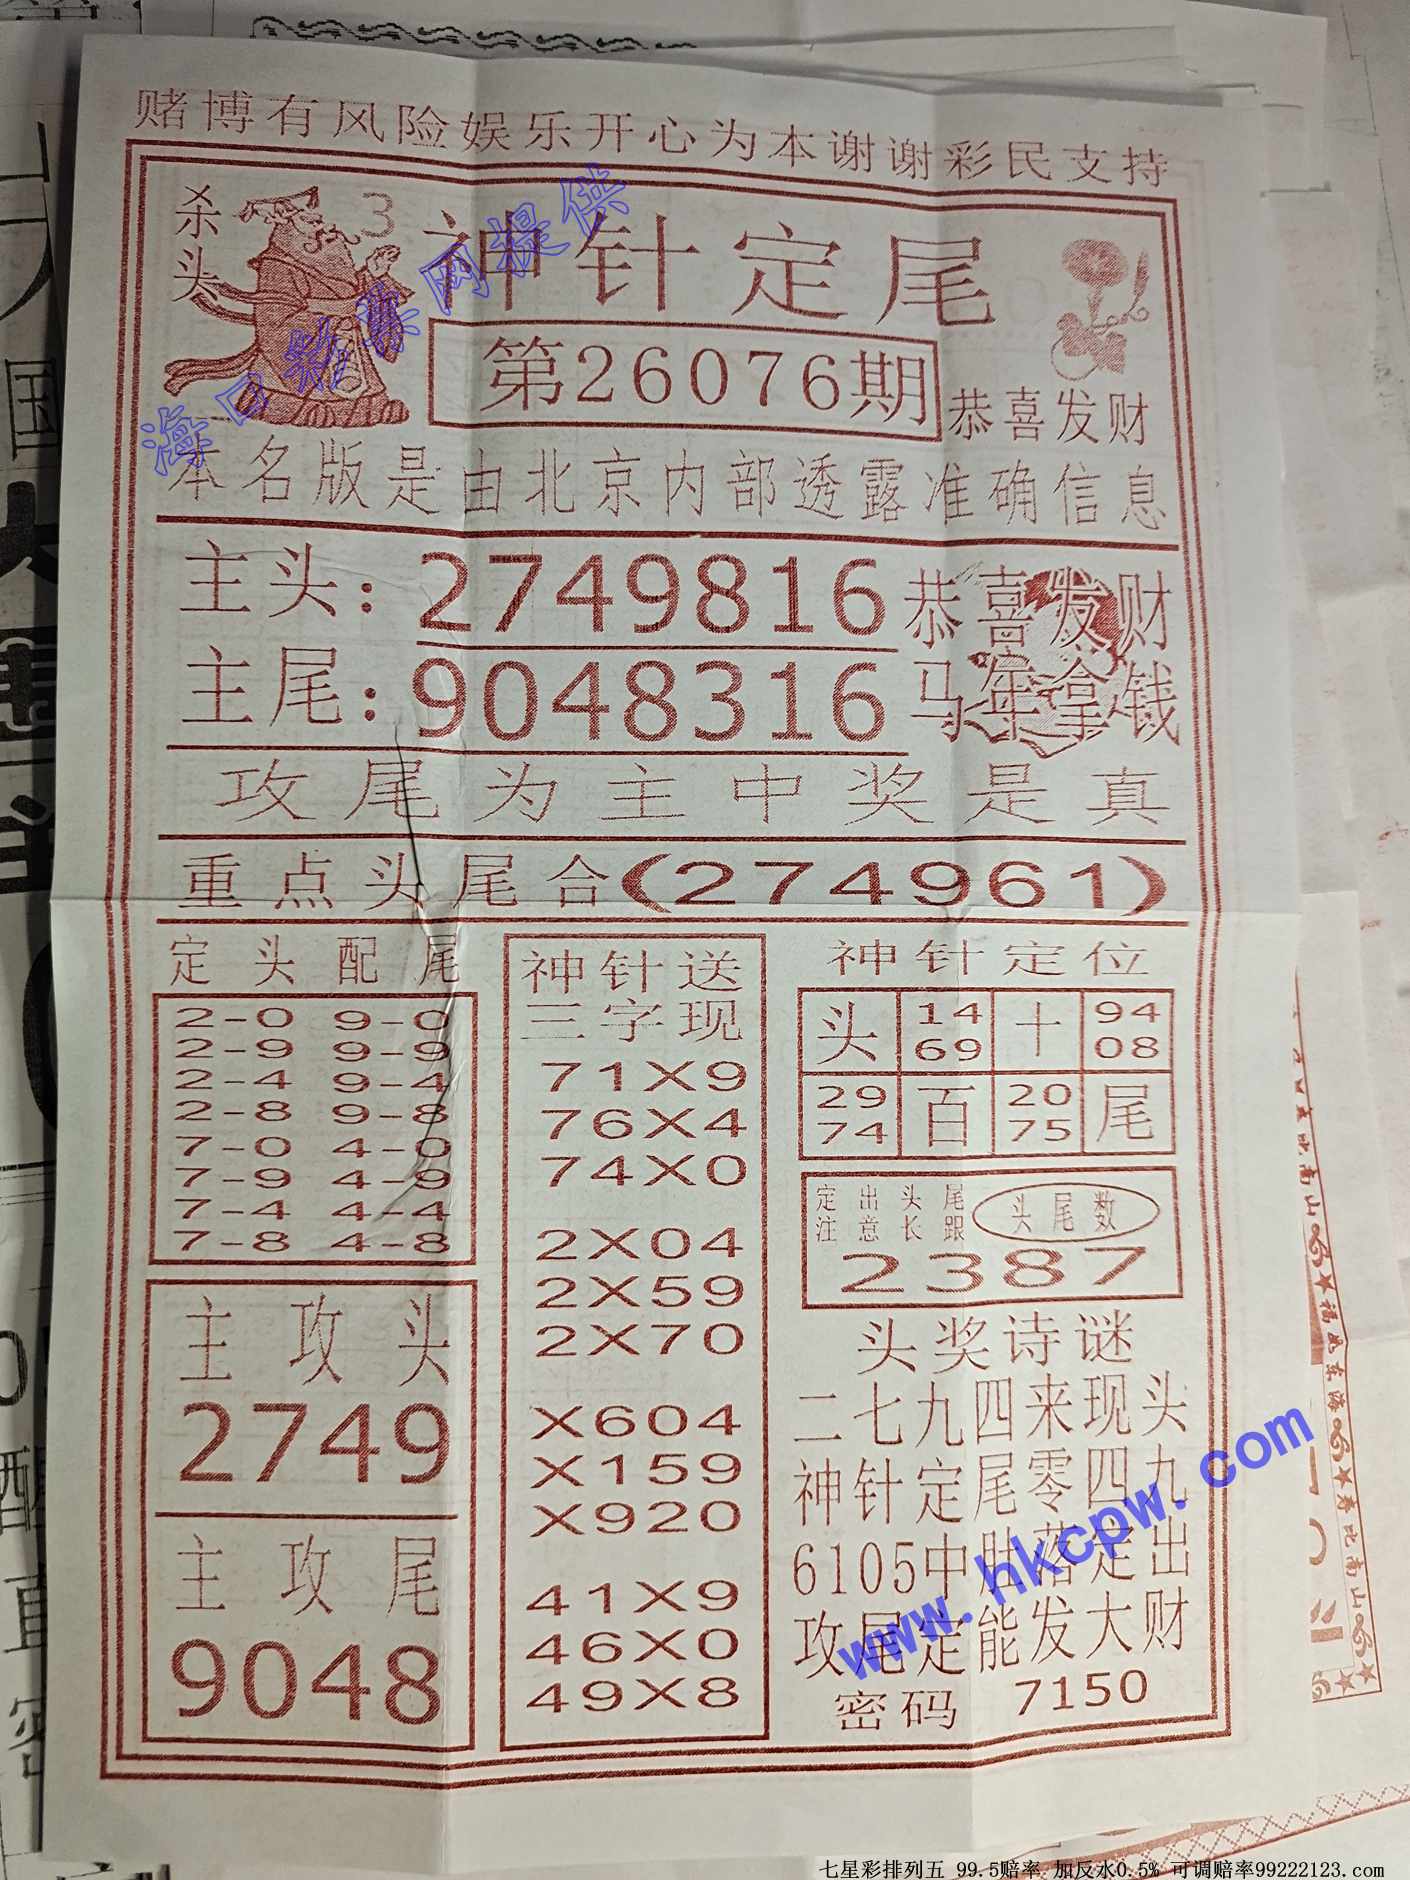 赌博有风险娱乐开心为本谢谢彩民支持
杀头
3
神针定尾
第26076期
恭喜发财
海口彩票网提供
本名版是由北京内部透露准确信息
主头：2749816
恭喜发财
主尾：9048316
马年拿钱
攻尾为主中奖是真
重点头尾合(274961)
定头配尾
2-0 9-0
2-9 9-9
2-4 9-4
2-8 9-8
7-0 4-0
7-9 4-9
7-4 4-4
7-8 4-8
主攻头
2749
主攻尾
9048
神针送
三字现
71X9
76X4
74X0
2X04
2X59
2X70
X604
X159
X920
41X9
46X0
49X8
神针定位
头 14 十 94
69 08
29 百 20 尾
74 75
定出头尾
注意长跟
头尾数
2387
头奖诗谜
二七九四来现头
神针定尾零四九
6105中肚落定出
攻尾定能发大财
密码 7150
www.hkcpw.com
七星彩排列五 99.5赔率 加反水0.5% 可调赔率99222123.com